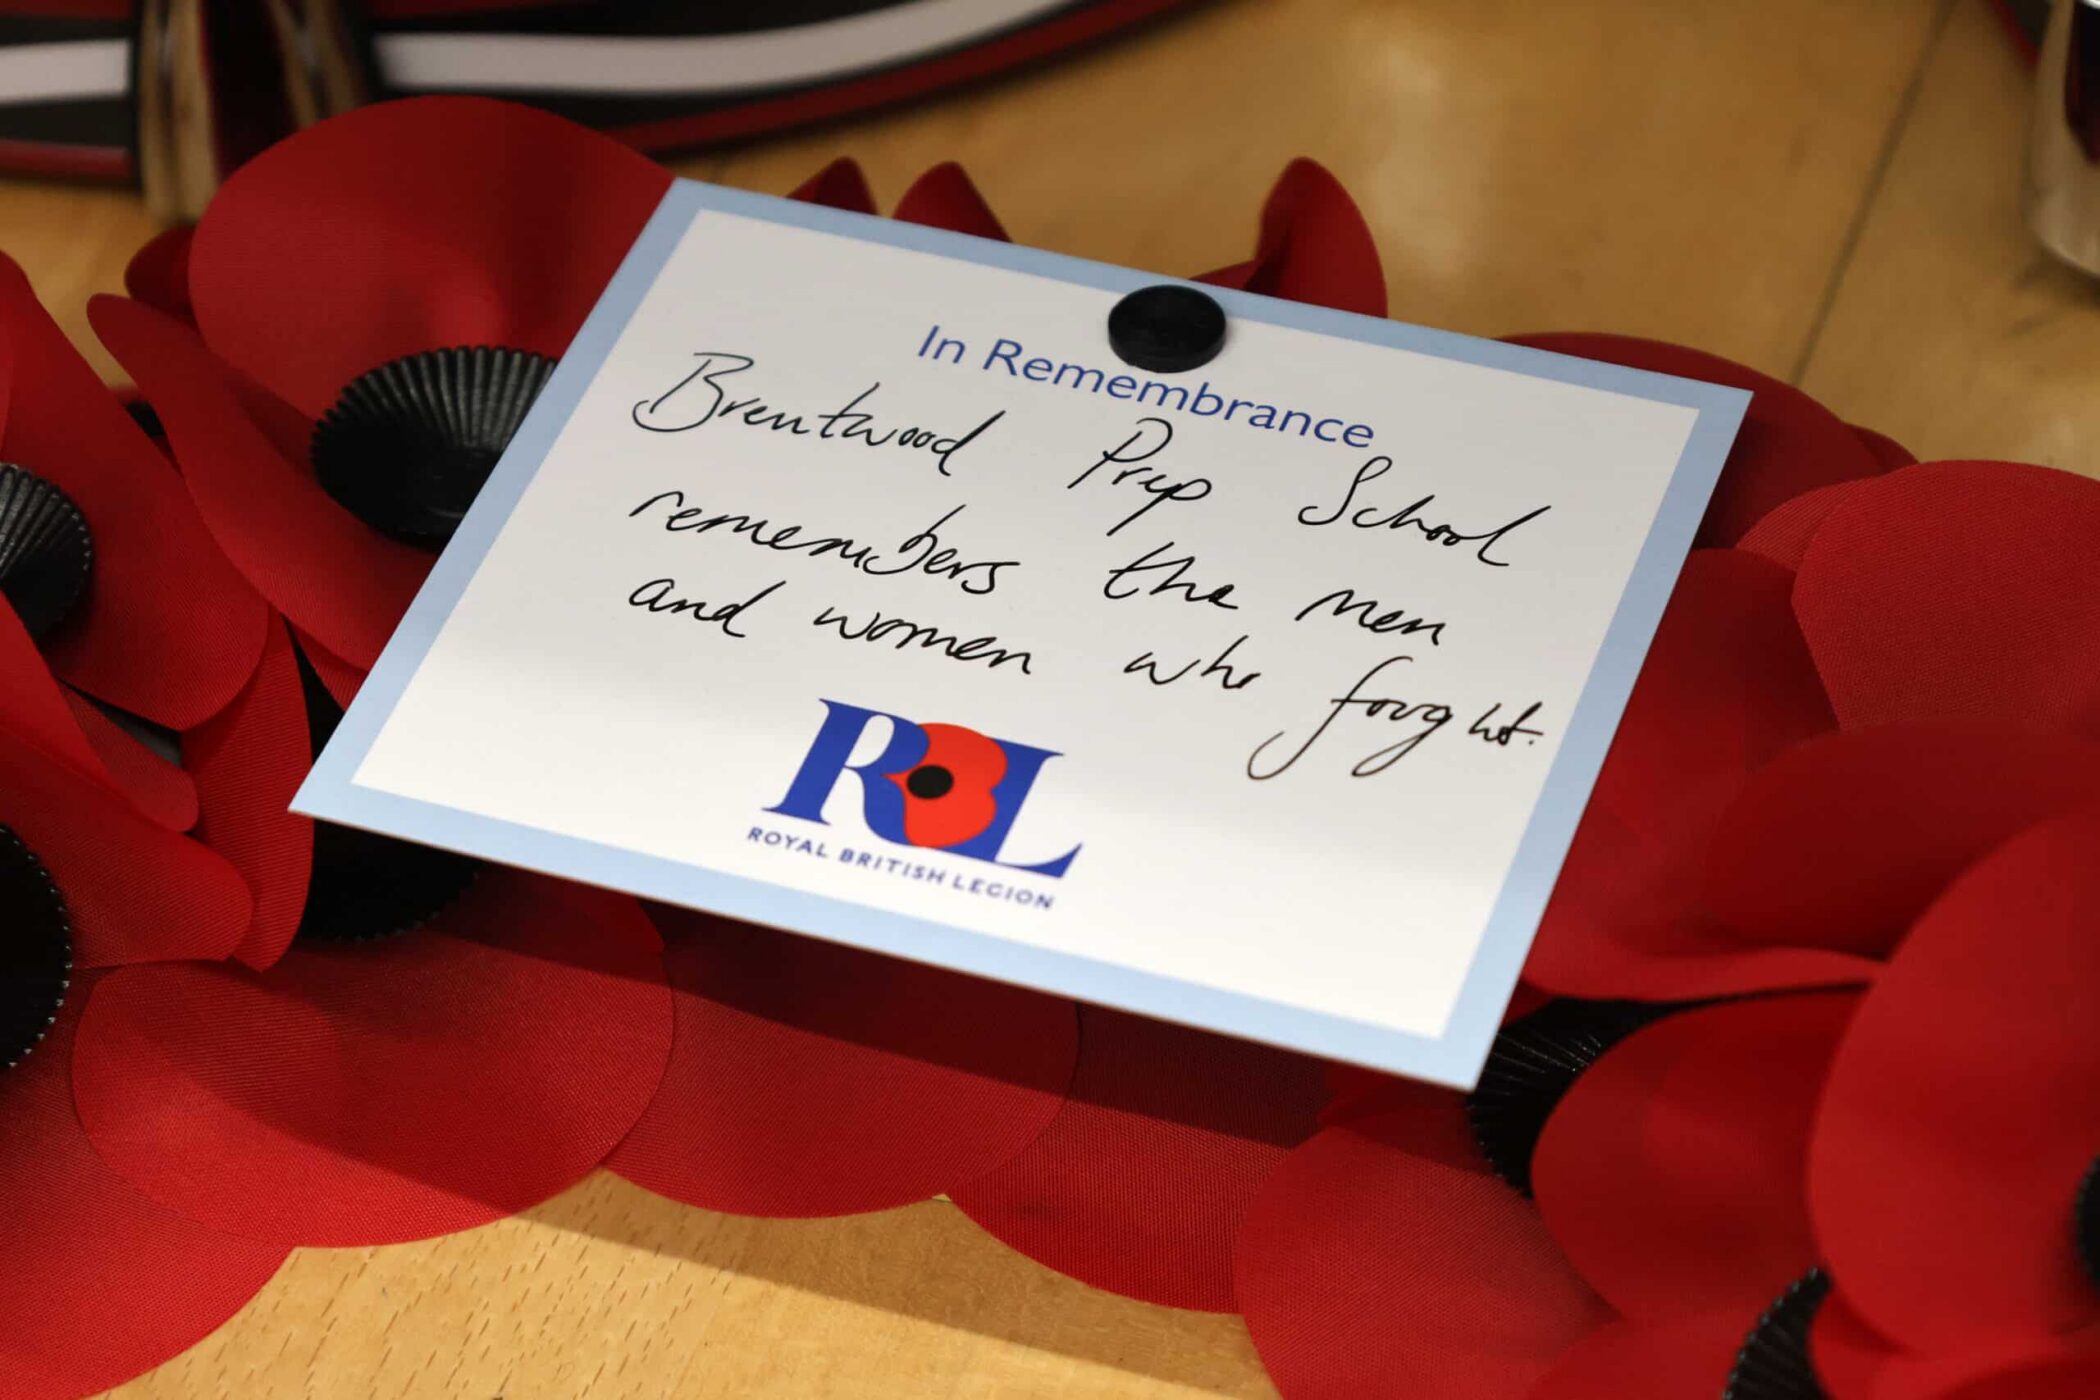 In Remembrance
Brentwood Prep School
remembers the men
and women who fought.
RBL
ROYAL BRITISH LEGION